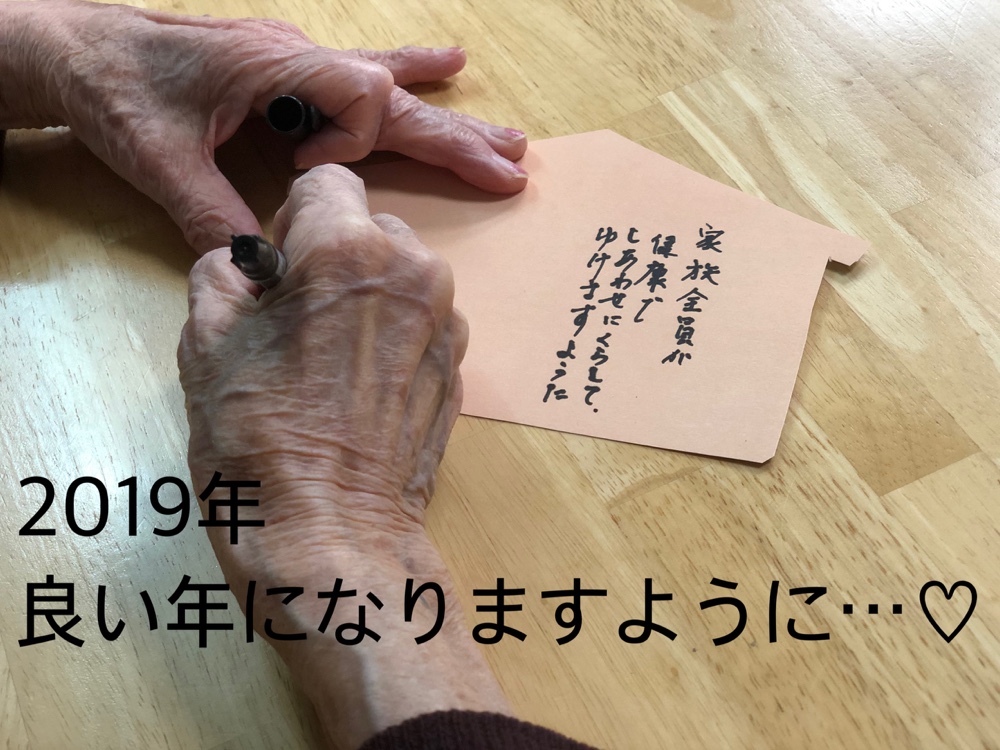 家族全員が
健康で
しあわせにくらして、
ゆけますように
2019年
良い年になりますように…♡